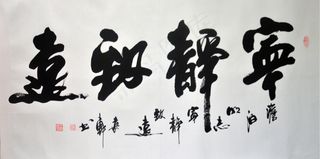 寧靜致遠
澹泊明志寧靜致遠